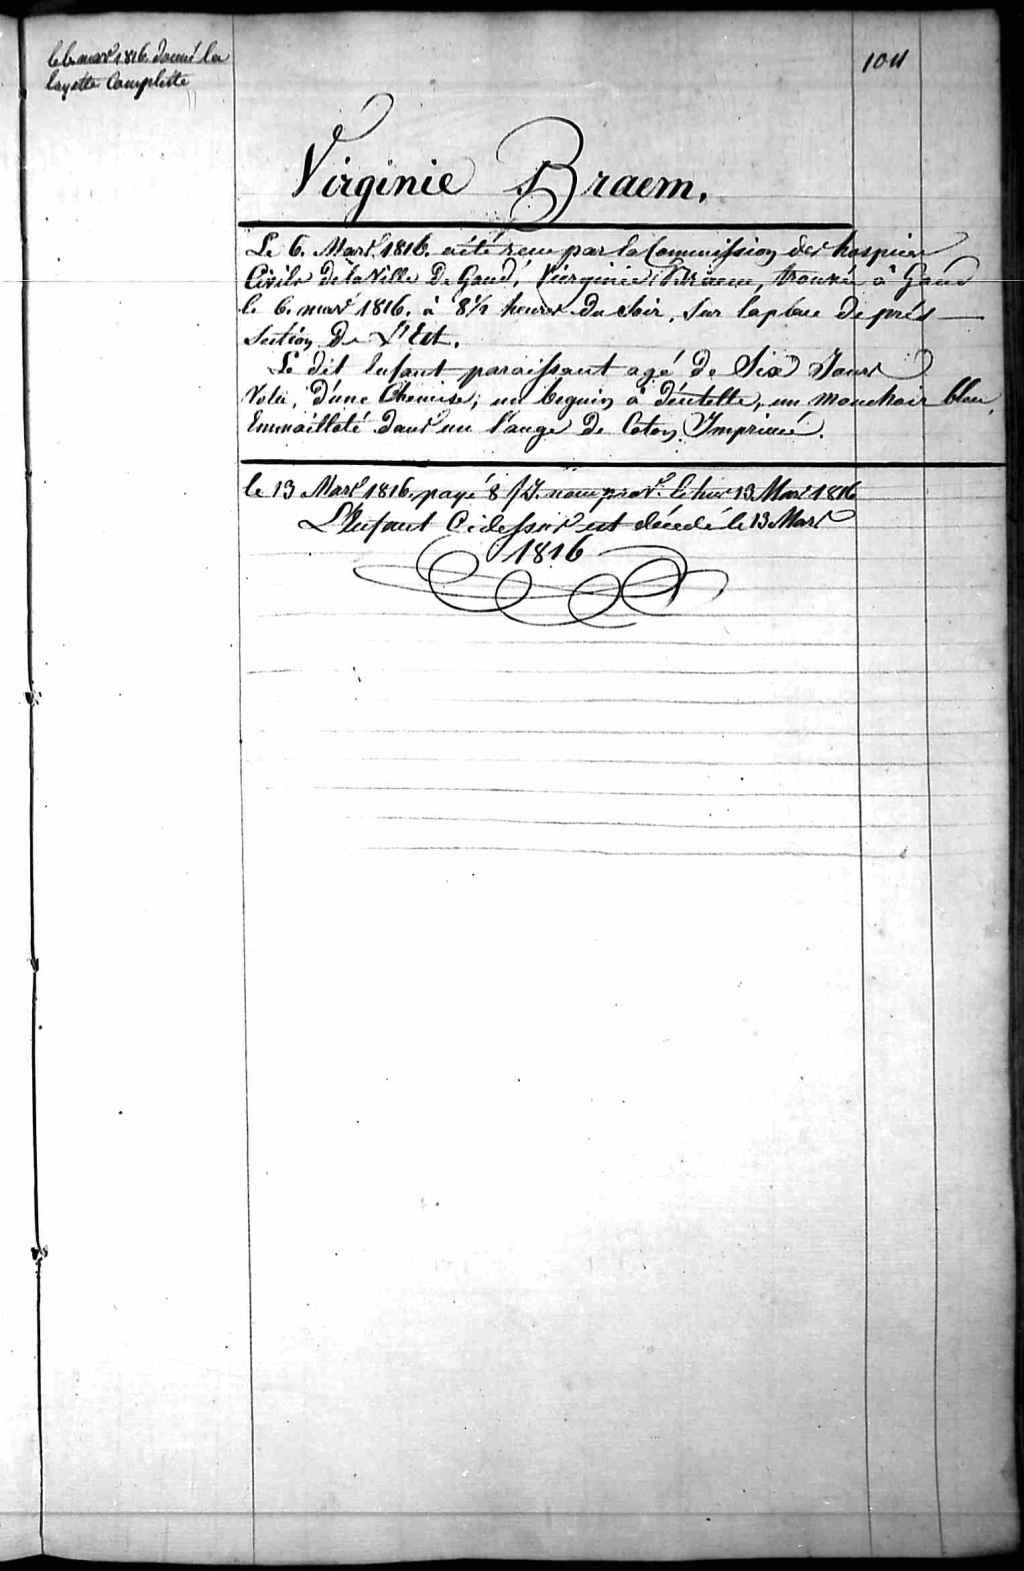 le 6 mars 1816 donné la
layette Complette
104
Virginie Braem.
Le 6. Mars 1816. a été recu par la Commission des hospices
Civils de la Ville De Gand, Viërginie Braem, trouvée à Gand
le 6. mars 1816. à 8 1/2 heures du Soir, Sur la place de près
Section De L'Est.
Le dit Enfant paraissant agé de Six Jours
Vetu, d'une Chemise, un beguin à déntelle, un mouchoir bleu,
Emmailloté dans un l'ange de Coton Imprimé.
le 13 Mars 1816, payé 8 le 13 Mars 1816
L'Enfant Cidessus est décédé le 13 Mars
1816